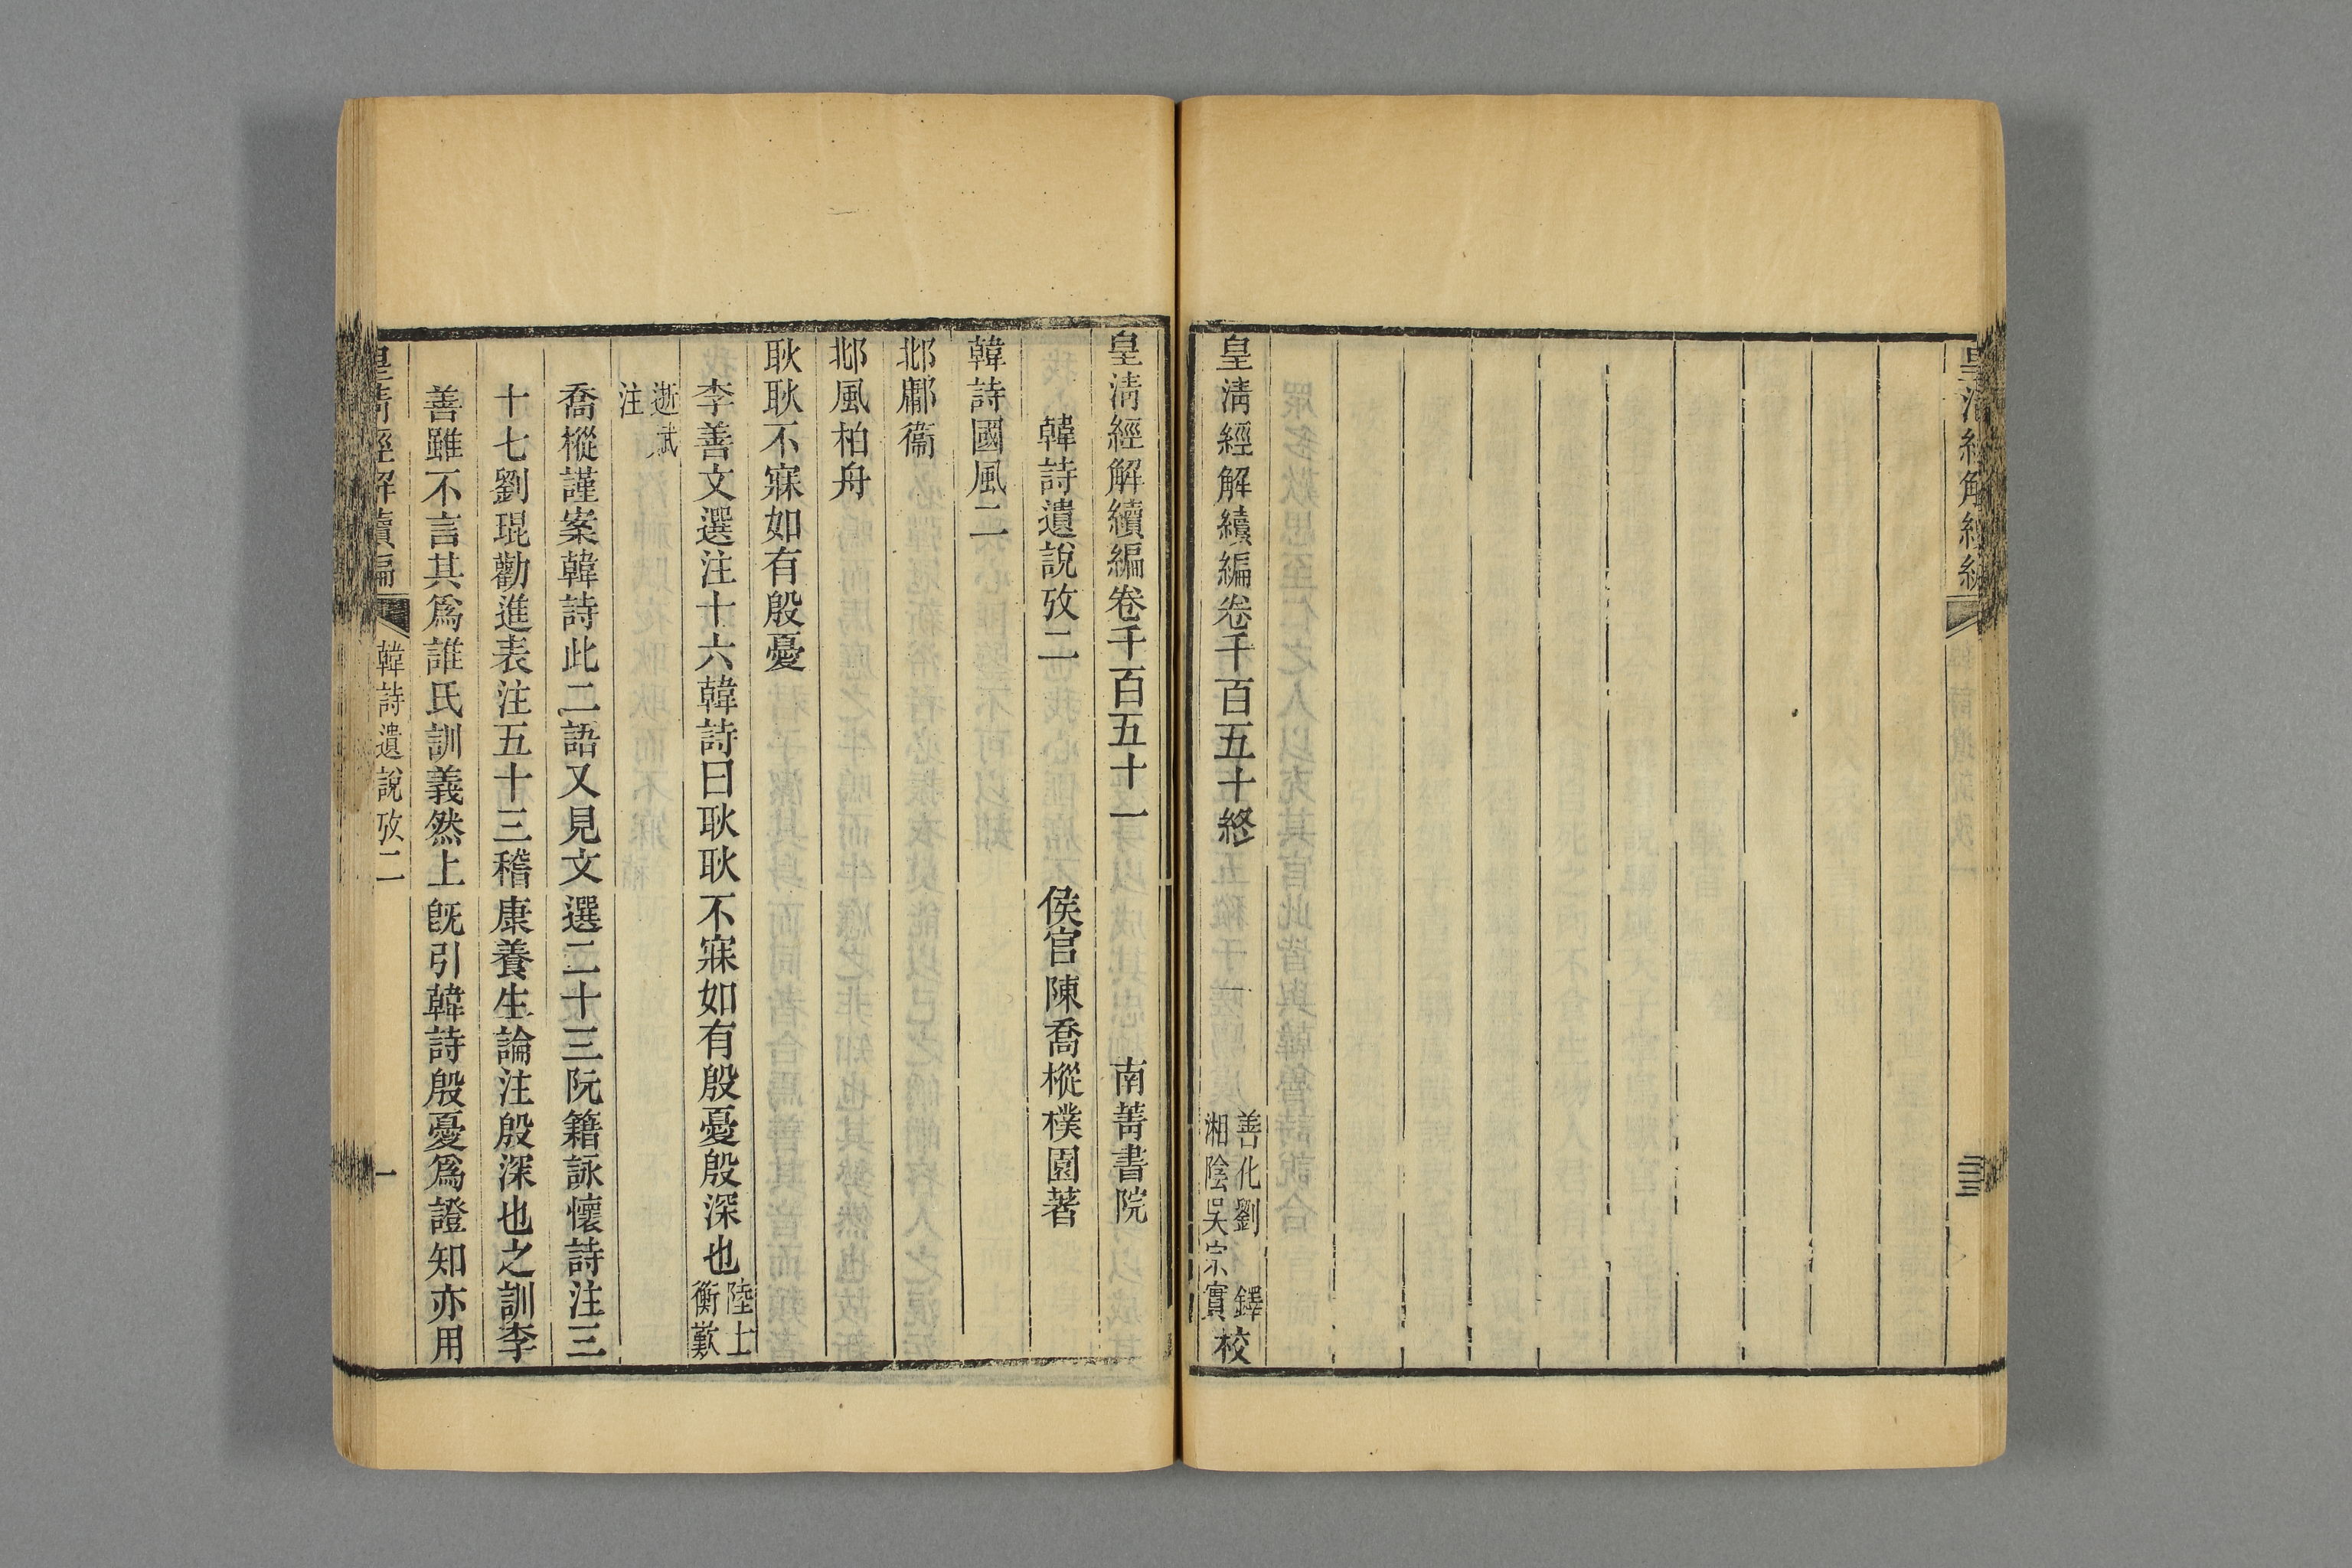 皇清經解續編卷千百五十終
善化劉鐸
湘陰吳宗實
校
皇清經解續編卷千百五十一 南菁書院
韓詩遺說攷二 侯官陳喬樅樸園著
韓詩國風二
邶鄘衞
邶風柏舟
耿耿不寐如有殷憂
李善文選注十六韓詩曰耿耿不寐如有殷憂殷深也陸士衡歎
逝賦注
喬樅謹案韓詩此二語又見文選二十三阮籍詠懷詩注三
十七劉琨勸進表注五十三稽康養生論注殷深也之訓李
善雖不言其爲誰氏訓義然上旣引韓詩殷憂爲證知亦用
皇清經解續編 韓詩遺說攷二 一